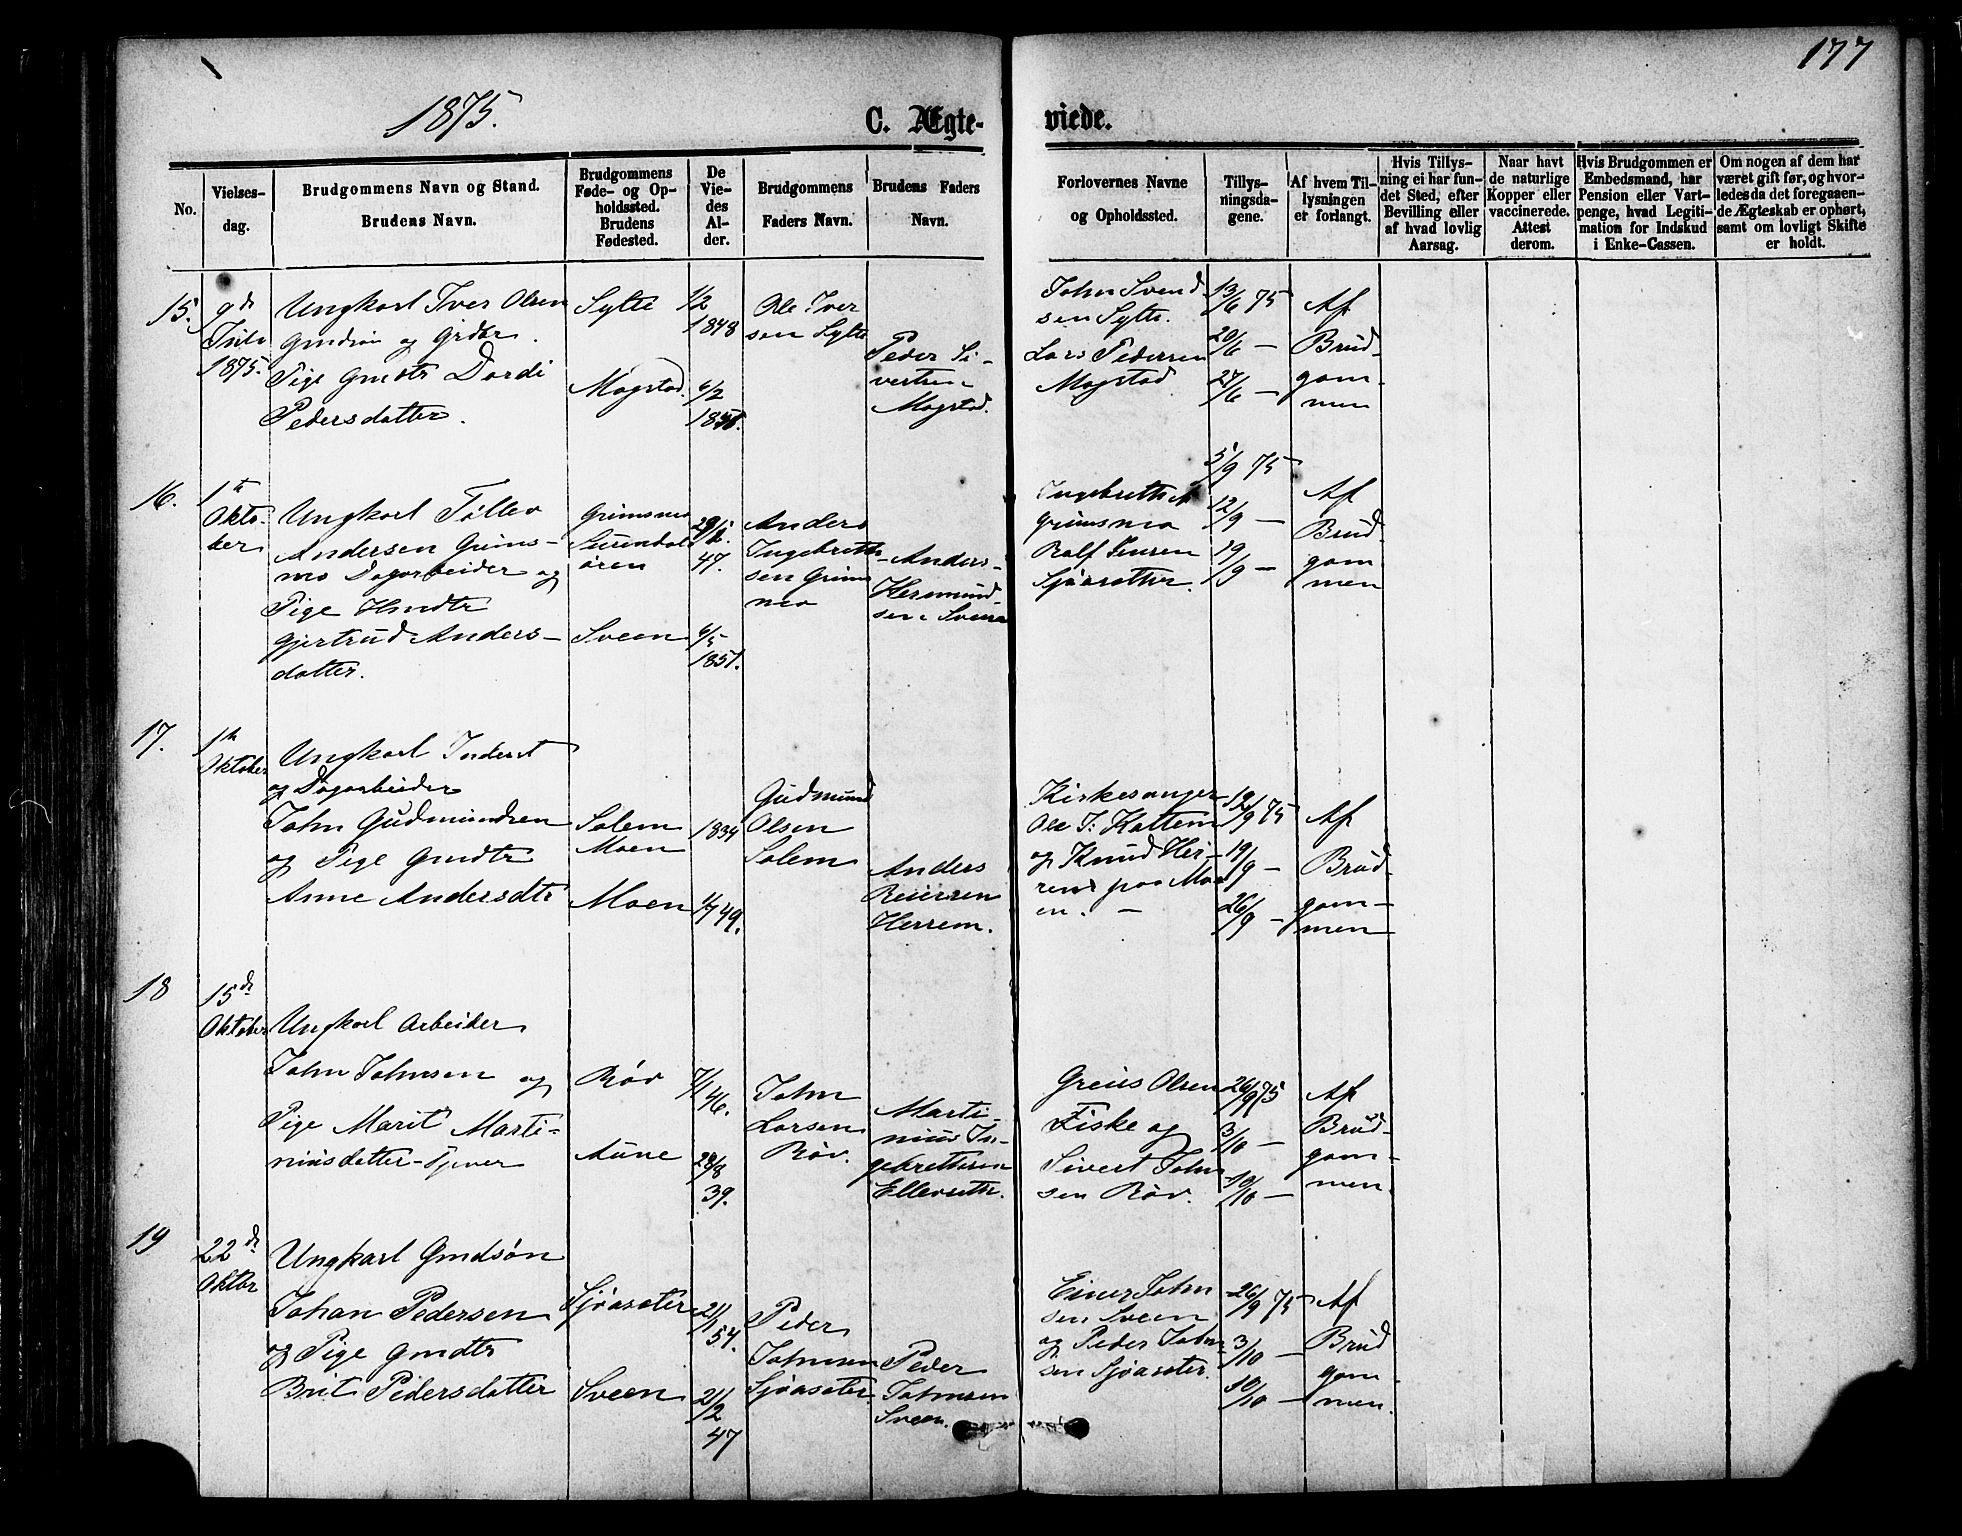 177
1875.
C. Ægte-
viede.
No.
Vielses-
dag.
Brudgommens Navn og Stand.
Brudens Navn.
Brudgommens
Føde- og Op-
holdssted.
Brudens
Fødested.
De
Vie-
des
Al-
der.
Brudgommens
Faders Navn.
Brudens Faders
Navn.
Forlovernes Navne
og Opholdssted.
Tillys-
ningsda-
gene.
Af hvem Til-
lysningen
er forlangt.
Hvis Tillys-
ning ei har fun-
det Sted, efter
Bevilling eller
af hvad lovlig
Aarsag.
Naar havt
de naturlige
Kopper eller
vaccinerede.
Attest
derom.
Hvis Brudgommen er
Embedsmand, har
Pension eller Vart-
penge, hvad Legiti-
mation for Indskud
i Enke-Cassen.
Om nogen af dem har
været gift før, og hvor-
ledes da det foregaaen-
de Ægteskab er ophørt,
samt om lovligt Skifte
er holdt.
15.
9de
Juli
1875.
Ungkarl Iver Olsen
og
Pige Gmdtr Dordi
Pedersdatter.
Sylte
Magstad.
1/2
1848
6/2
Ole Iver
sen Sylte
Peder Si-
vertsen
Magstad.
John Svend
sen Sylte.
Lars Pedersen
Magstad
13/6 75
20/6 —
27/6 —
Af
Brud-
gom-
men
16.
1te
Okto-
ber
Ungkarl Tøllev
Andersen Grims-
mo Dagarbeider og
Pige Hmdtr
Gjertrud Anders-
datter.
Grimsmo
Surendals
øren
Sveen
47.
6/5
1851.
Anders
Ingebrigt-
sen Grims
mo
Anders
Hermund-
sen Sveen
Grimsmo
Rolf Jensen
Sjøasæter.
5/9 75
12/9 —
19/9 —
Af
Brud-
gom
men
17.
1te
Oktober
Ungkarl Inderst
og Dagarbeider
John Gudmundsen
og Pige Gmdtr
Anne Andersdtr
Solem
Moen
Moen
1834
1/7 49.
Gudmund
Olsen
Solem
Anders
Reiersen
Herrem.
Kirkesanger
Ole J. Kattem
og Knud Hei-
paa Mo-
en. —
12/9 75
19/9 —
26/9 —
Af
Brud-
gom-
men
18
15de
Oktober
Ungkarl Arbeider
John Johnsen og
Pige Marit Marti-
niusdatter Tjener
Røv
Aune
7/1
46.
28/8
39.
John
Larsen
Røv.
Marti-
nius In-
gebrettsen
Ellevseth.
Greius Olsen
Fiske og
Sivert John
sen Røv.
26/9 75
3/10 —
10/10 —
Af
Brud-
gom-
men.
19
22de
Oktbr
Ungkarl Gmdsøn
Johan Pedersen
og Pige Gmdtr
Brit Pedersdatter
Sjøasæter
Sveen
21/1
54.
21/2
47
Peder
Johnsen
Sjøasæter
Peder
Johnsen
Sveen.
Einer John
sen Sveen
og Peder John-
sen Sjøasæter.
26/9 75
3/10 —
10/10 —
Af
Brud
gom-
men.